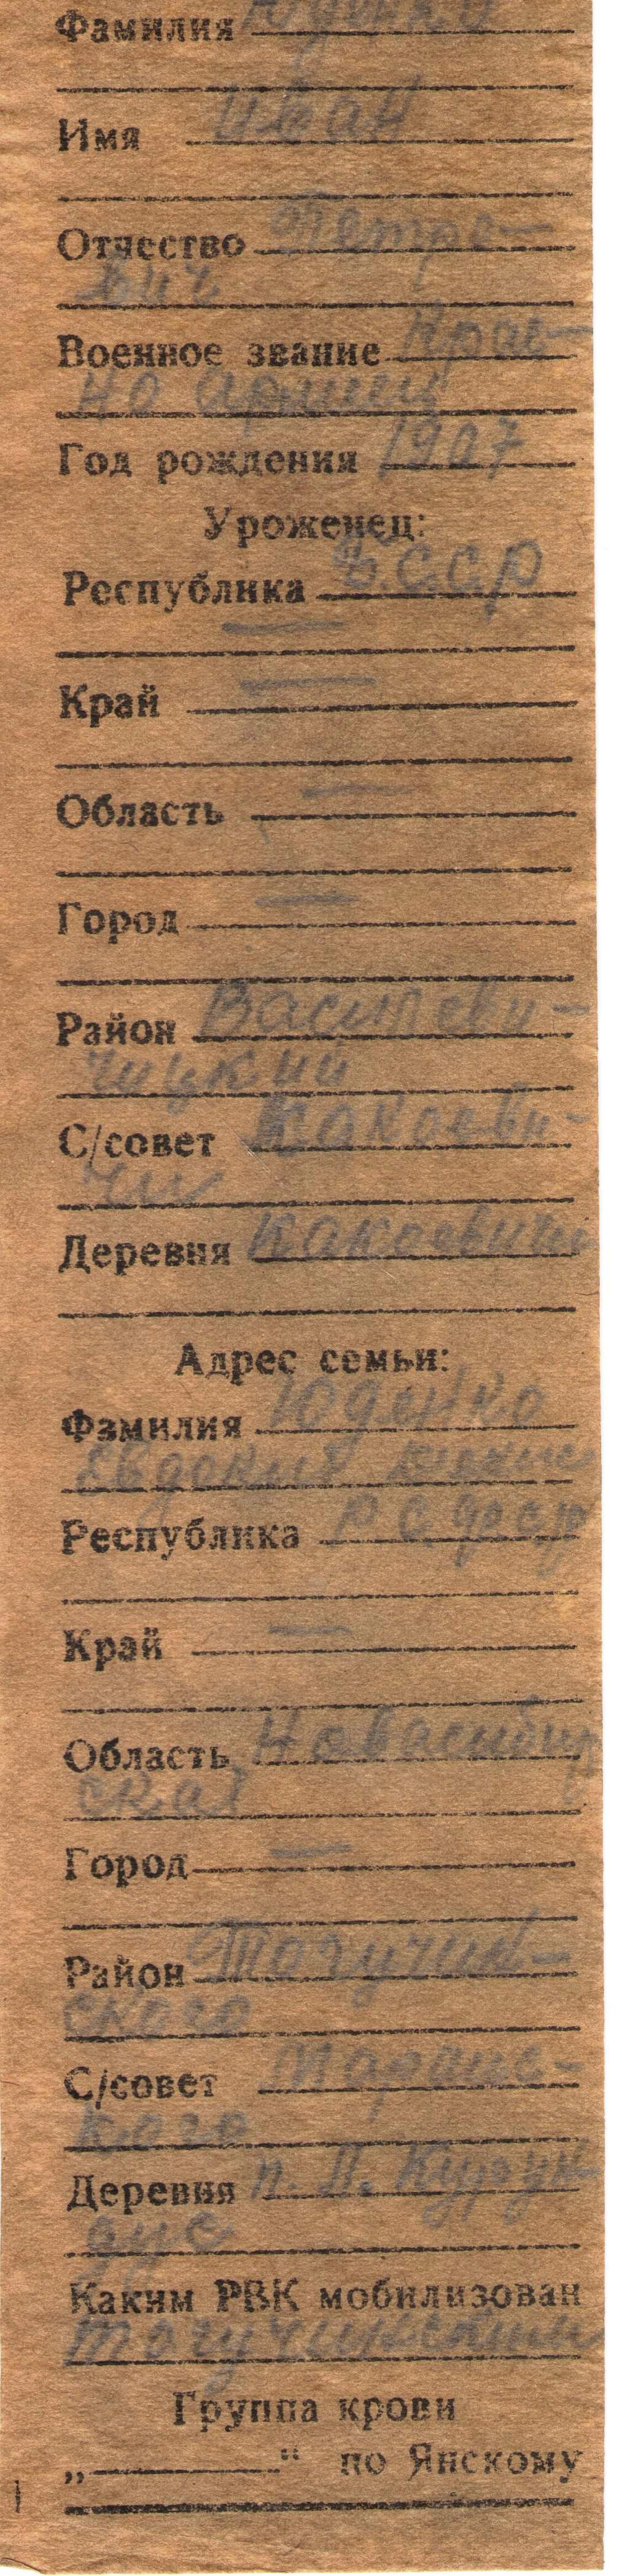 Фамилия
Имя Иван
Отчество Петро-
вич
Военное звание Крас-
но армеец
Год рождения 1907
Уроженец:
Республика Б.С.С.Р
Край —
Область —
Город —
Район Василеви-
чицкий
С/совет Какоеви-
чи
Деревня Какоевичи
Адрес семьи:
Фамилия Юденко
Евдокия
Республика РСФССР
Край —
Область Новасибир
ская
Город —
Район Тогучин-
ского
С/совет Мараис-
кого
Деревня п. Л. Кургун-
дус
Каким РВК мобилизован
Тогучинским
Группа крови
„ “ по Янскому